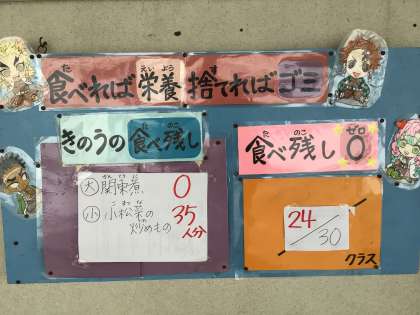 食べれば栄養捨てればゴミ
きのうの食べ残し
食べ残し0
大 関東煮 0
小 小松菜の炒めもの 35人分
24/30
クラス